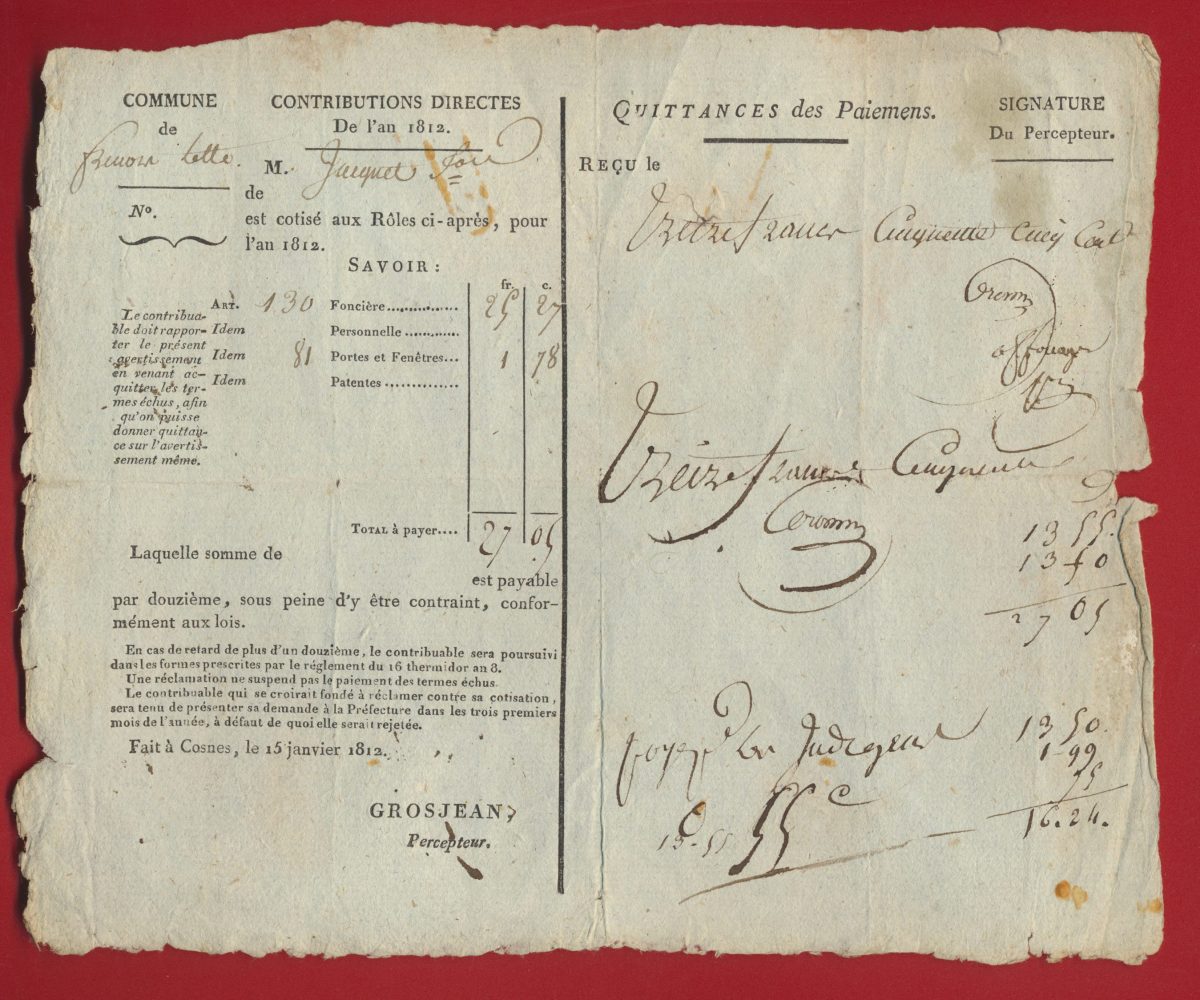 COMMUNE
de
N°.
CONTRIBUTIONS DIRECTES
De l'an 1812.
M. Jacquet
de
est cotisé aux Rôles ci-après, pour
l'an 1812.
SAVOIR :
fr. c.
ART. 130 Foncière.............. 25 27
Idem Personnelle ............
Idem 81 Portes et Fenêtres... 1 78
Idem Patentes ..............
Le contribua-
ble doit rappor-
ter le présent
avertissement
en venant ac-
quitter les ter-
mes échus, afin
qu'on puisse
donner quittan-
ce sur l'avertis-
sement même.
TOTAL à payer.... 27 05
Laquelle somme de
est payable
par douzième, sous peine d'y être contraint, confor-
mément aux lois.
En cas de retard de plus d'un douzième, le contribuable sera poursuivi
dans les formes prescrites par le réglement du 16 thermidor an 8.
Une réclamation ne suspend pas le paiement des termes échus.
Le contribuable qui se croirait fondé à réclamer contre sa cotisation,
sera tenu de présenter sa demande à la Préfecture dans les trois premiers
mois de l'année, à défaut de quoi elle serait rejetée.
Fait à Cosnes, le 15 janvier 1812.
GROSJEAN,
Percepteur.
QUITTANCES des Paiemens.
SIGNATURE
Du Percepteur.
REÇU le
Treize francs Cinquante Cinq Cent
Treize francs Cinquante
13 55.
13 50
27 05
13 50.
1-99
75
16.24.
55 c